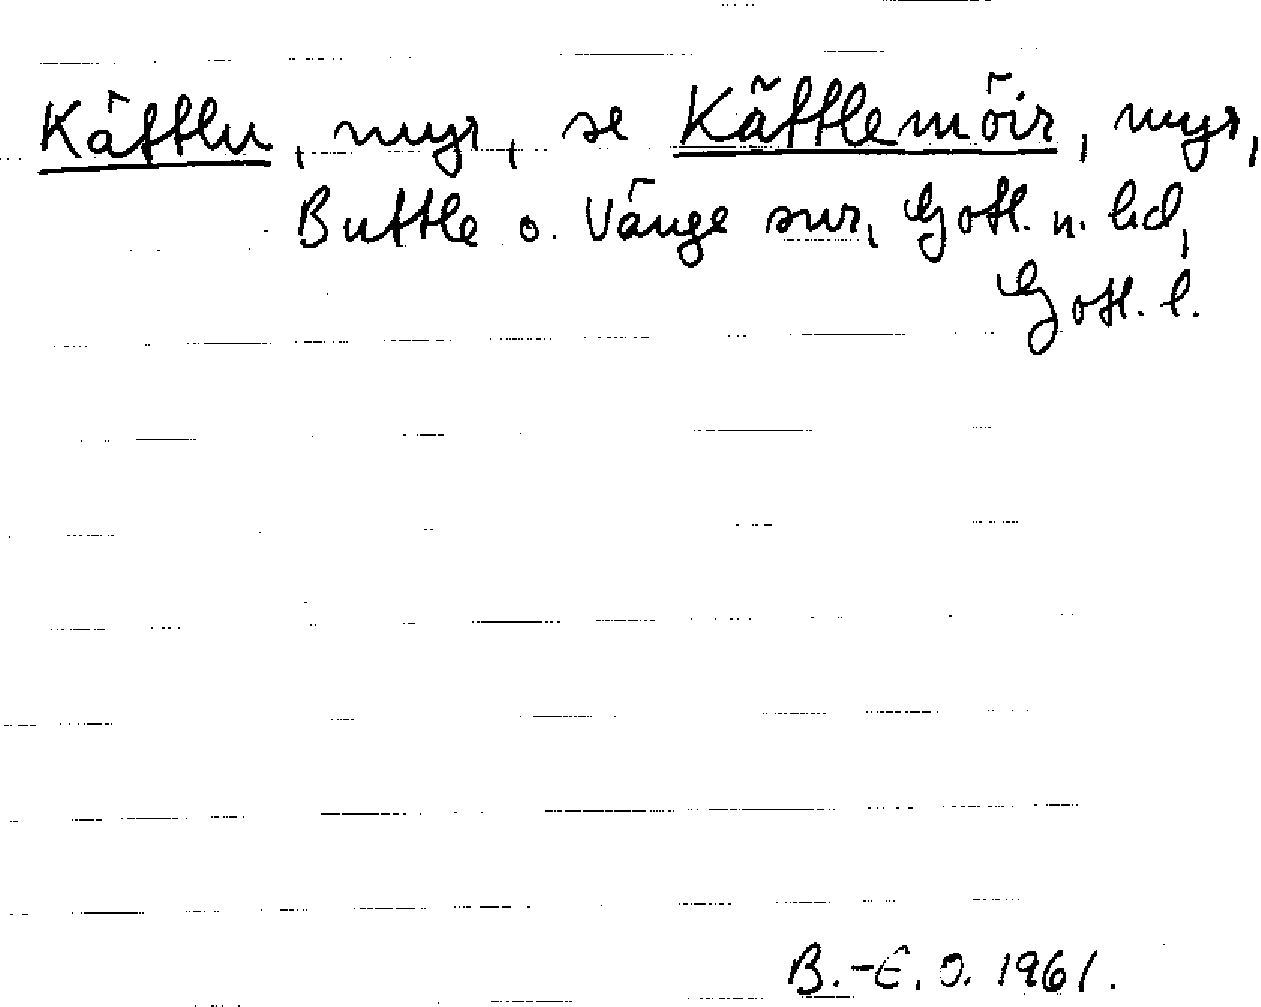 Kättlu, myr, se Kättlemöir, myr,
Buttle o. Vänge snr, Gotl. n. hd,
Gotl. l.
B.-E. O. 1961.